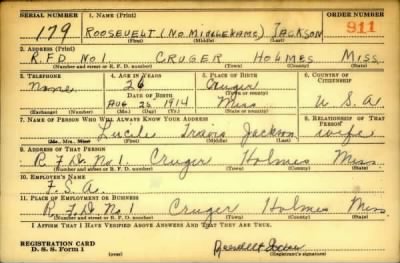 SERIAL NUMBER 1. NAME (Print) ORDER NUMBER
179 ROOSEVELT (NO MIDDLE NAME) JACKSON 911
(First) (Middle) (Last)
2. ADDRESS (Print)
R.F.D No. 1 CRUGER HOLMES MISS.
(Number and street or R. F. D. number) (Town) (County) (State)
3. TELEPHONE 4. AGE IN YEARS 5. PLACE OF BIRTH 6. COUNTRY OF CITIZENSHIP
None 26 Cruger
DATE OF BIRTH (Town or county)
Aug 25 1914 Miss U S A
(Exchange) (Number) (Mo.) (Day) (Yr.) (State or country)
7. NAME OF PERSON WHO WILL ALWAYS KNOW YOUR ADDRESS 8. RELATIONSHIP OF THAT PERSON
Lucile Travis Jackson wife
(Mr., Mrs., Miss) (First) (Middle) (Last)
9. ADDRESS OF THAT PERSON
R F D. No. 1 Cruger Holmes Miss
(Number and street or R. F. D. number) (Town) (County) (State)
10. EMPLOYER'S NAME
F. S. A.
11. PLACE OF EMPLOYMENT OR BUSINESS
R F D. No 1 Cruger Holmes Miss.
(Number and street or R. F. D. number) (Town) (County) (State)
I AFFIRM THAT I HAVE VERIFIED ABOVE ANSWERS AND THAT THEY ARE TRUE.
REGISTRATION CARD
D. S. S. Form 1 (Registrant's signature)